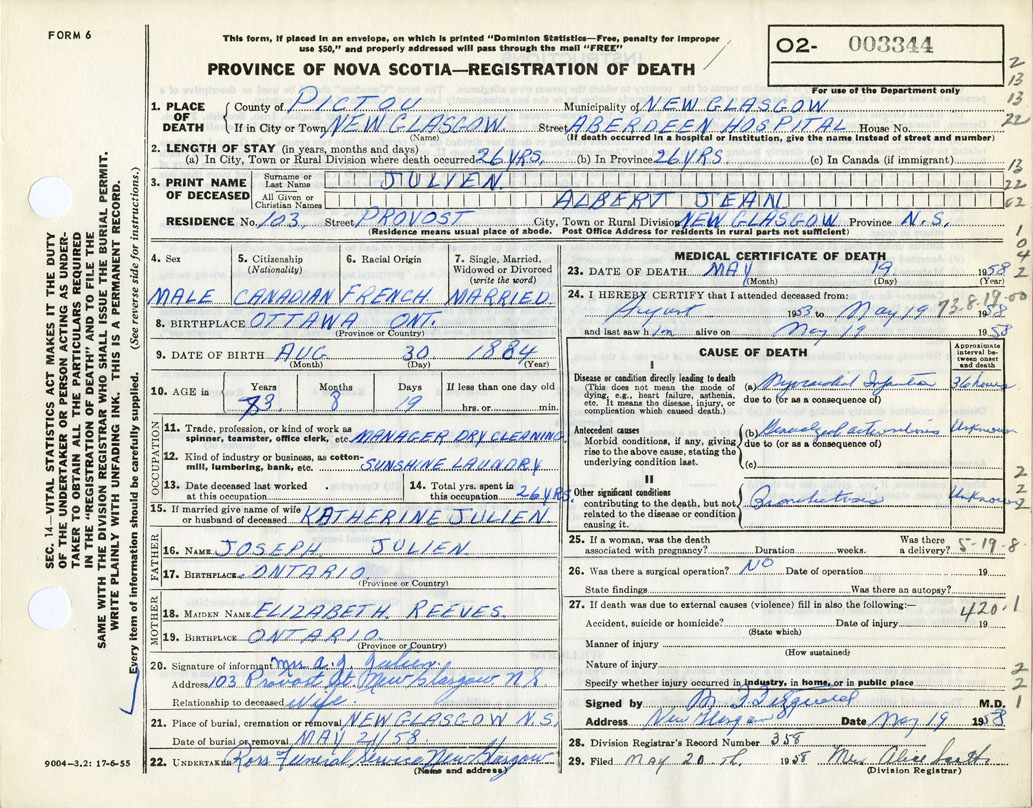 FORM 6
This form, if placed in an envelope, on which is printed "Dominion Statistics—Free, penalty for improper
use $50," and properly addressed will pass through the mail "FREE"
02- 003344
PROVINCE OF NOVA SCOTIA—REGISTRATION OF DEATH
For use of the Department only
1. PLACE OF DEATH
County of PICTOU Municipality of NEW GLASGOW
If in City or Town NEW GLASGOW Street ABERDEEN HOSPITAL House No.
(Name) (If death occurred in a hospital or institution, give the name instead of street and number)
2. LENGTH OF STAY (in years, months and days)
(a) In City, Town or Rural Division where death occurred 26 YRS. (b) In Province 26 YRS. (c) In Canada (if immigrant)
3. PRINT NAME OF DECEASED
Surname or Last Name JULIEN
All Given or Christian Names ALBERT JEAN
RESIDENCE No. 103 Street PROVOST City, Town or Rural Division NEW GLASGOW Province N.S.
(Residence means usual place of abode. Post Office Address for residents in rural parts not sufficient)
4. Sex MALE
5. Citizenship (Nationality) CANADIAN
6. Racial Origin FRENCH
7. Single, Married, Widowed or Divorced (write the word) MARRIED
8. BIRTHPLACE OTTAWA ONT.
(Province or Country)
9. DATE OF BIRTH AUG. 30 1884
(Month) (Day) (Year)
10. AGE in Years 73 Months 8 Days 19 If less than one day old hrs. or min.
OCCUPATION
11. Trade, profession, or kind of work as
spinner, teamster, office clerk, etc. MANAGER DRY CLEANING
12. Kind of industry or business, as cotton-
mill, lumbering, bank, etc. SUNSHINE LAUNDRY
13. Date deceased last worked at this occupation
14. Total yrs. spent in this occupation 26 YRS.
15. If married give name of wife
or husband of deceased KATHERINE JULIEN
FATHER
16. NAME JOSEPH JULIEN
17. BIRTHPLACE ONTARIO
(Province or Country)
MOTHER
18. MAIDEN NAME ELIZABETH REEVES
19. BIRTHPLACE ONTARIO
(Province or Country)
20. Signature of informant Mrs A. J. Julien
Address 103 Provost St. New Glasgow NS
Relationship to deceased Wife
21. Place of burial, cremation or removal NEW GLASGOW N.S.
Date of burial or removal MAY 21/58
22. UNDERTAKER Ross Funeral Service New Glasgow
(Name and address)
9004—3.2: 17-6-55
MEDICAL CERTIFICATE OF DEATH
23. DATE OF DEATH MAY 19 1958
(Month) (Day) (Year)
24. I HEREBY CERTIFY that I attended deceased from: 73-8-19-00
August 1953 to May 19 1958
and last saw him alive on May 19 1958
CAUSE OF DEATH
Approximate interval between onset and death
I
Disease or condition directly leading to death
(This does not mean the mode of
dying, e.g., heart failure, asthenia,
etc. It means the disease, injury, or
complication which caused death.)
(a) Myocardial Infarction 36 hours
due to (or as a consequence of)
Antecedent causes
Morbid conditions, if any, giving
rise to the above cause, stating the
underlying condition last.
(b) Generalized arteriosclerosis Unknown
due to (or as a consequence of)
(c)
II
Other significant conditions
contributing to the death, but not
related to the disease or condition
causing it.
Unknown
25. If a woman, was the death associated with pregnancy? Duration weeks. Was there a delivery? 5-19-8
26. Was there a surgical operation? NO Date of operation 19
State findings Was there an autopsy?
27. If death was due to external causes (violence) fill in also the following:— 420.1
Accident, suicide or homicide? Date of injury 19
(State which)
Manner of injury
(How sustained)
Nature of injury
Specify whether injury occurred in industry, in home, or in public place
Signed by M.D.
Address New Glasgow Date May 19 1958
28. Division Registrar's Record Number 358
29. Filed MAY 20 th 1958 Mrs Alice
(Division Registrar)
SEC. 14—VITAL STATISTICS ACT MAKES IT THE DUTY
OF THE UNDERTAKER OR PERSON ACTING AS UNDER-
TAKER TO OBTAIN ALL THE PARTICULARS REQUIRED
IN THE "REGISTRATION OF DEATH" AND TO FILE THE
SAME WITH THE DIVISION REGISTRAR WHO SHALL ISSUE THE BURIAL PERMIT.
WRITE PLAINLY WITH UNFADING INK. THIS IS A PERMANENT RECORD.
Every item of information should be carefully supplied. (See reverse side for instructions.)
2
13
13
22
13
22
62
1
0
4
2
2
2
2
2
2
1